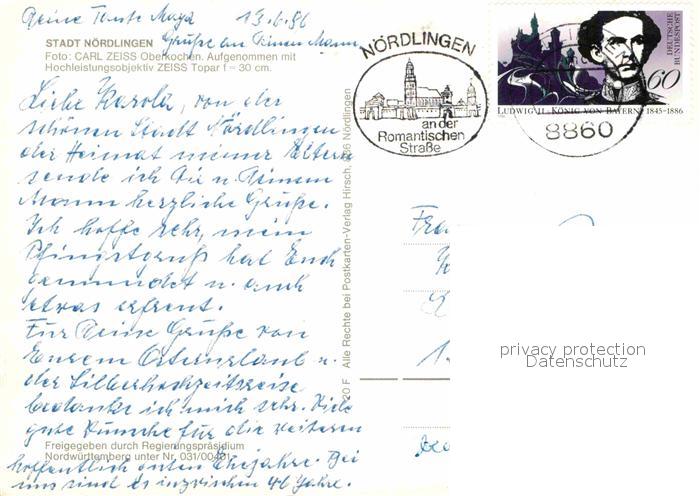 Deine Tante Maya 13.6.86
Grüße an Deinen Mann
STADT NÖRDLINGEN
Foto: CARL ZEISS Oberkochen. Aufgenommen mit
Hochleistungsobjektiv ZEISS Topar f = 30 cm.
Liebe Karola, von der
schönen Stadt Nördlingen
der Heimat meiner Eltern
sende ich Dir u. Deinem
Mann herzliche Grüße.
Ich hoffe sehr, mein
Pfingstgruß hat Euch
gemundet u. auch
etwas erfreut.
Für Deine Grüße von
Eurem Osterurlaub u.
der Silberhochzeitsreise
bedanke ich mich sehr. Viele
gute Wünsche für die weiteren
hoffentlich guten Ehejahre. Bei
uns sind es inzwischen 46 Jahre.
Freigegeben durch Regierungspräsidium
Nordwürttemberg unter Nr. 031/00401
20 F Alle Rechte bei Postkarten-Verlag Hirsch, 886 Nördlingen
NÖRDLINGEN
an der
Romantischen
Straße
8860
DEUTSCHE
BUNDESPOST
60
LUDWIG II. KÖNIG VON BAYERN 1845-1886
privacy protection
Datenschutz